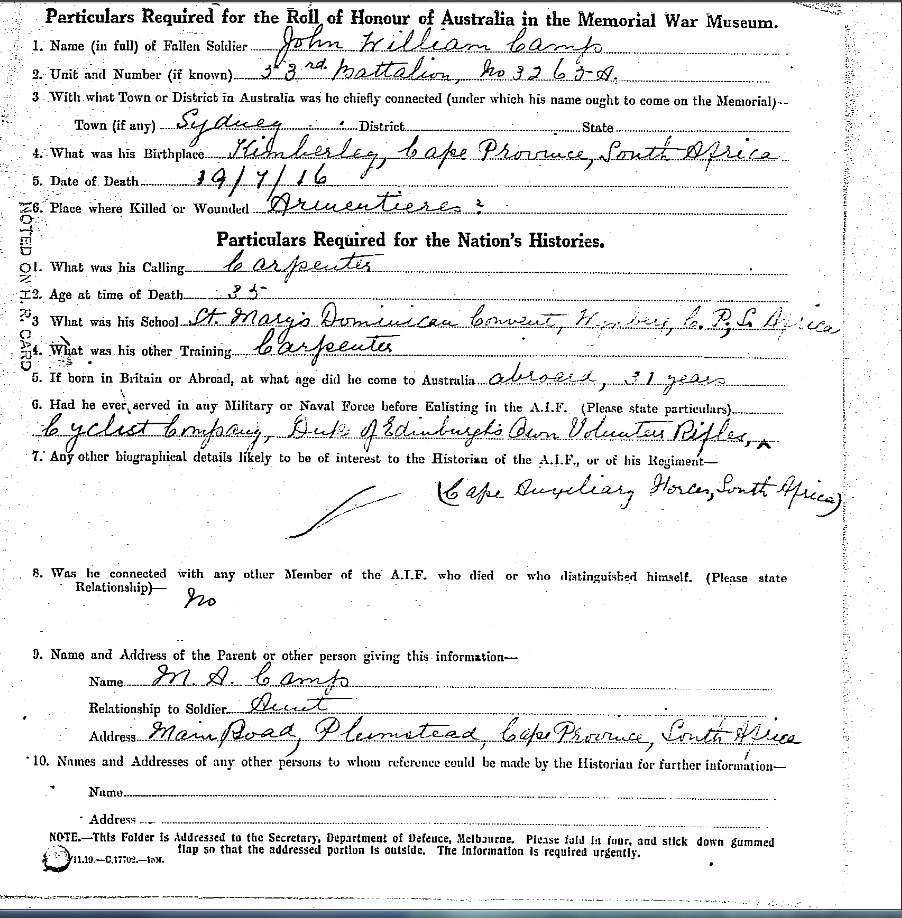 Particulars Required for the Roll of Honour of Australia in the Memorial War Museum.
1. Name (in full) of Fallen Soldier John William Camp
2. Unit and Number (if known) 53rd Battalion, No 3263A.
3 With what Town or District in Australia was he chiefly connected (under which his name ought to come on the Memorial)--
Town (if any) Sydney District State
4. What was his Birthplace Kimberley, Cape Province, South Africa
5. Date of Death 19/7/16
6. Place where Killed or Wounded Armentieres ?
NOTED ON H.R. CARD
Particulars Required for the Nation's Histories.
1. What was his Calling Carpenter
2. Age at time of Death 35
3 What was his School St. Mary's Dominican Convent, Wynberg, C. P., S. Africa
4. What was his other Training Carpenter
5. If born in Britain or Abroad, at what age did he come to Australia abroad, 31 years
6. Had he ever served in any Military or Naval Force before Enlisting in the A.I.F. (Please state particulars)
Cyclist Company, Duke of Edinburgh's Own Volunteer Rifles, ^
7. Any other biographical details likely to be of interest to the Historian of the A.I.F., or of his Regiment—
(Cape Auxiliary Forces, South Africa)
8. Was he connected with any other Member of the A.I.F. who died or who distinguished himself. (Please state
Relationship)—
No
9. Name and Address of the Parent or other person giving this information—
Name M. A. Camp
Relationship to Soldier Aunt
Address Main Road, Plumstead, Cape Province, South Africa
10. Names and Addresses of any other persons to whom reference could be made by the Historian for further information—
Name
Address
NOTE.—This Folder is Addressed to the Secretary, Department of Defence, Melbourne. Please fold in four, and stick down gummed
flap so that the addressed portion is outside. The Information is required urgently.
11.19.—C.17702.—10M.